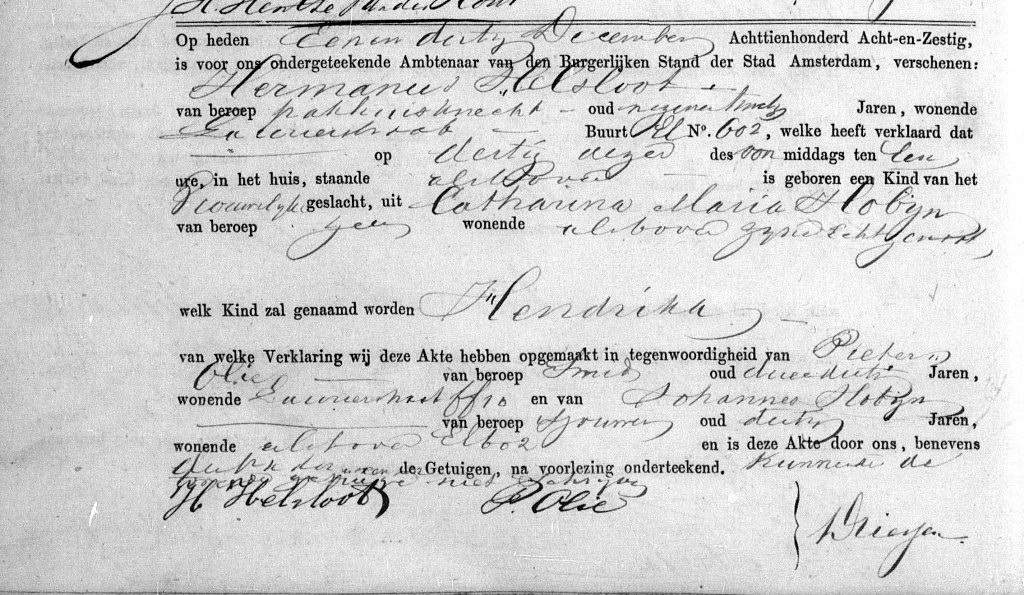 Op heden Een en dertig December Achttienhonderd Acht-en-Zestig,
is voor ons ondergeteekende Ambtenaar van den Burgerlijken Stand der Stad Amsterdam, verschenen:
Hermanus Helsloot
van beroep pakhuisknecht oud negenentwintig Jaren, wonende
Laurierstraat Buurt EE Nº. 602, welke heeft verklaard dat
op dertig dezer des voor middags ten een
ure, in het huis, staande alsboven is geboren een Kind van het
Vrouwelijke geslacht, uit Catharina Maria Hobijn
van beroep geen wonende alsboven zijne Echtgenoot,
welk Kind zal genaamd worden Hendrika
van welke Verklaring wij deze Akte hebben opgemaakt in tegenwoordigheid van Pieter
Olie van beroep Smid oud Jaren,
wonende Laurierstraat en van Johannes Hobijn
van beroep sjouwer oud dertig Jaren,
wonende alsboven 602 en is deze Akte door ons, benevens
de Getuigen, na voorlezing onderteekend. Kunnende de
getuige niet schrijven
H Helsloot P. Olie